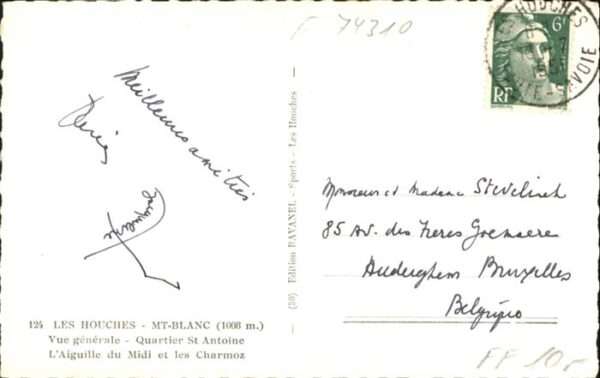 F 74310
Meilleures amitiés
124 LES HOUCHES - MT-BLANC (1008 m.)
Vue générale - Quartier St Antoine
L'Aiguille du Midi et les Charmoz
Edition RAVANEL - Sports - Les Houches
6F
RF
HOUCHES
SAVOIE
Monsieur et Madame
85 Av. des Freres Goemaere
Auderghem Bruxelles
Belgique
FF 10,-